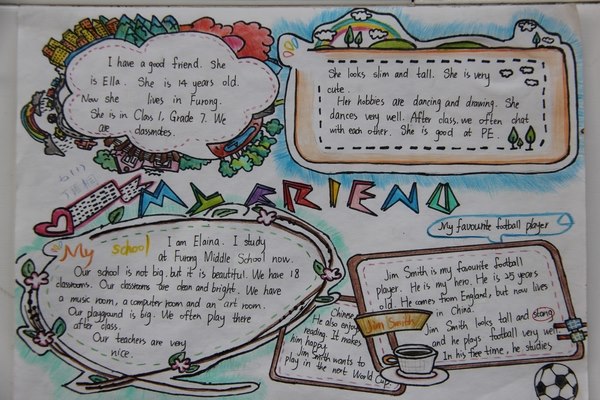 I have a good friend. She
is Ella. She is 14 years old.
Now she lives in Furong.
She is in Class 1, Grade 7. We
are classmates.
She looks slim and tall. She is very
cute.
Her hobbies are dancing and drawing. She
dances very well. After class, we often chat
with each other. She is good at PE.
MY FRIEND
My school
I am Elaina. I study
at Furong Middle School now.
Our school is not big, but it is beautiful. We have 18
classrooms. Our classrooms are clean and bright. We have
a music room, a computer room and an art room.
Our playground is big. We often play there
after class.
Our teachers are very
nice.
My favourite football player
Jim Smith is my favourite football
player. He is my hero. He is 25 years
old. He comes from England, but now lives
in China.
Jim Smith looks tall and strong
and he plays football very well
In his free time, he studies
Jim Smith
Chinese
He also enjoy
reading. It makes
him happy.
Jim Smith wants to
play in the next World Cup.